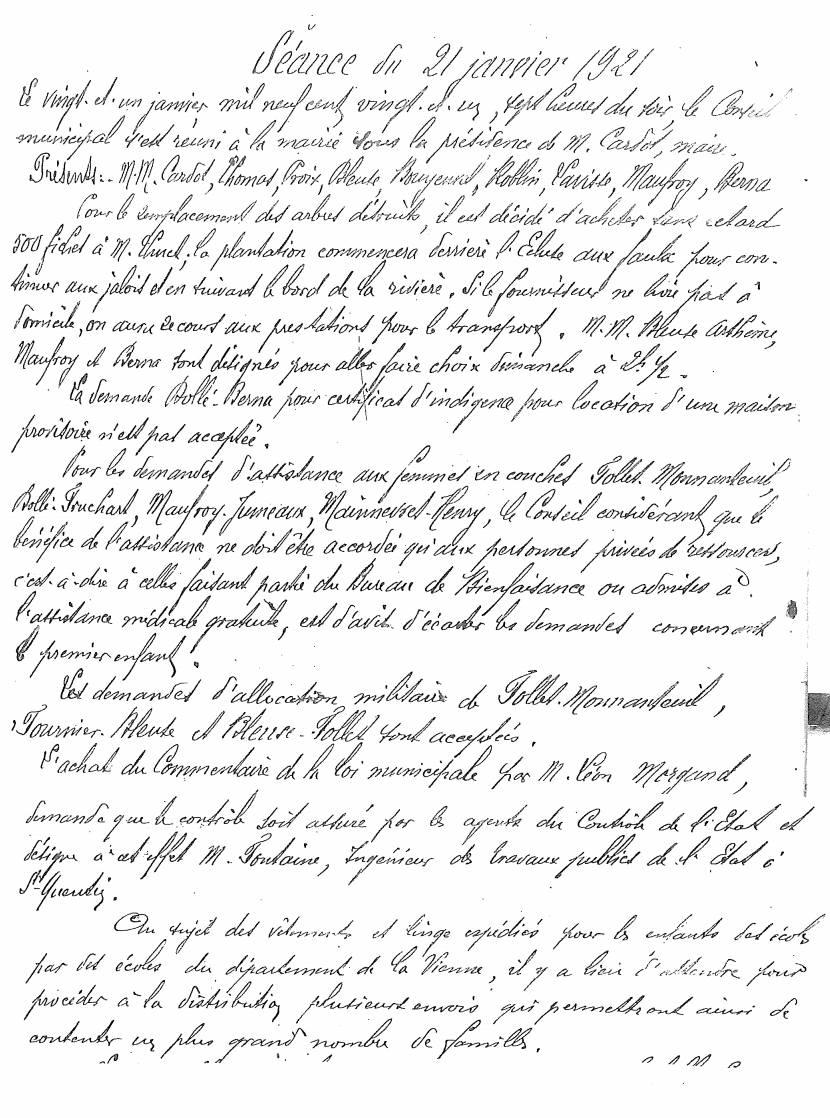 Séance du 21 janvier 1921
Le vingt-et-un janvier, mil neuf cent vingt-et-un, sept heures du soir le Conseil
municipal s'est réuni à la mairie sous la présidence de M. Cardot, maire.
Présents:- M.M. Cardot, Thomas, Croix, Bleuse, Bouyenval, Hoblin, Lavisse, Maufroy, Berna
Pour le remplacement des arbres détruits, il est décidé d'acheter sans retard
500 fiches à M. la plantation commencera derrière l'Ecluse aux faulx pour con-
tinuer aux jalois et en suivant le bord de la rivière. Si le fournisseur ne livre pas à
domicile, on aura recours aux prestations pour le transport. M.M. Bleuse Arthème,
Maufroy et Berna sont désignés pour aller faire choix dimanche à 2h 1/2.
La demande Bollé-Berna pour certificat d'indigence pour location d'une maison
provisoire n'est pas acceptée.
Pour les demandes d'assistance aux femmes en couches Follet-Monnanteuil,
Bollé-Truchart, Maufroy-Jumeaux, Mainnevret-Henry, le Conseil considérant que le
bénéfice de l'assistance ne doit être accordée qu'aux personnes privées de ressources,
c'est-à-dire à celles faisant partie du Bureau de Bienfaisance ou admises à
l'assistance médicale gratuite, est d'avis d'écarter les demandes concernant
le premier enfant.
Les demandes d'allocation militaire de Follet-Monnanteuil,
Tournier-Bleuse et Bleuse-Follet sont acceptées.
L'achat du Commentaire de la loi municipale par M. Léon Morgand,
demande que le contrôle soit assuré par les agents du Contrôle de l'Etat et
désigne à cet effet M. Fontaine, Ingénieur des travaux publics de l'Etat à
St Quentin.
Au sujet des vêtements et linge expédiés pour les enfants des écoles
par des écoles du département de la Vienne, il y a lieu d'attendre pour
procéder à la distribution plusieurs envois qui permettront ainsi de
contenter un plus grand nombre de familles.